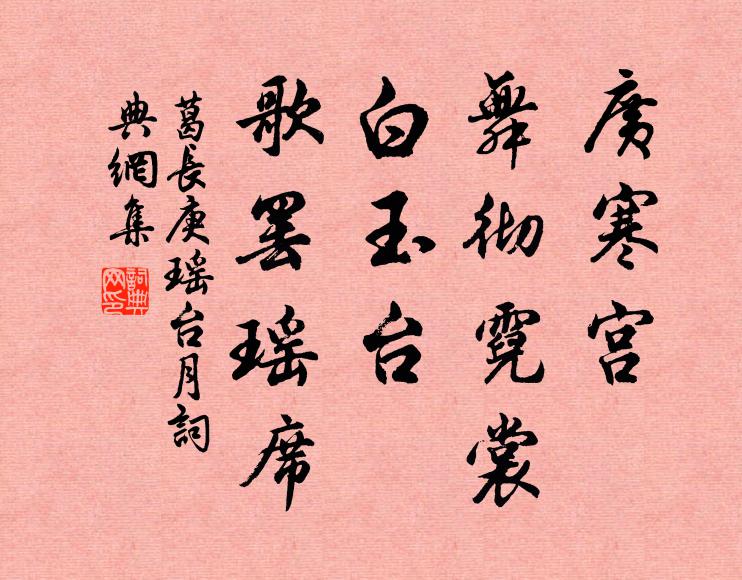 廣寒宫
舞彻霓裳
白玉台
歌罢瑶席
葛長庚瑶台月詞
典網集
詞典網印